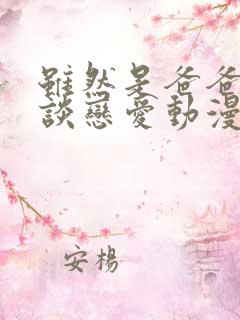 雖然是爸爸
談戀愛動漫
安楊